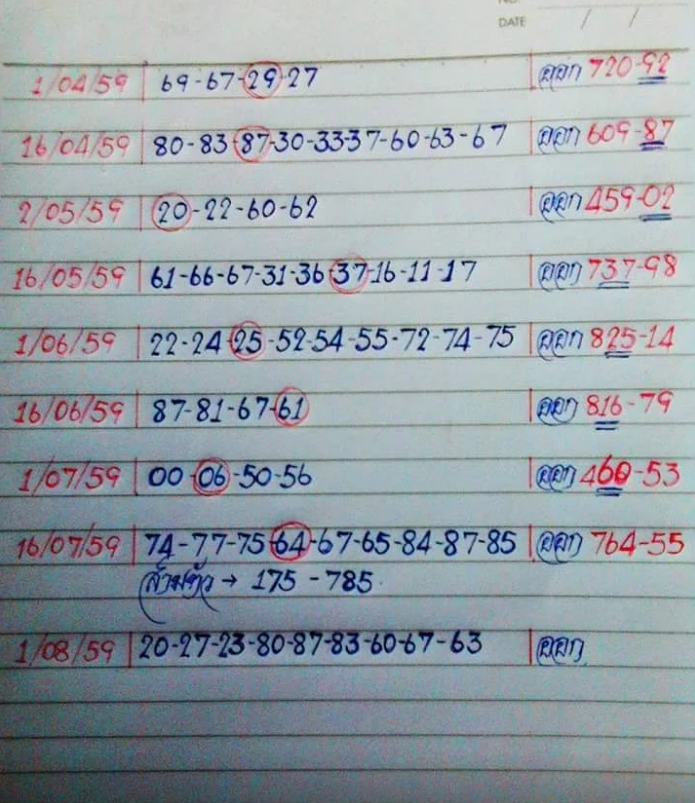 DATE / /
1/04/59 69-67-29-27 ออก 720-92
16/04/59 80-83-87-30-33-37-60-63-67 ออก 609-87
2/05/59 20-22-60-62 ออก 459-02
16/05/59 61-66-67-31-36-37-16-11-17 ออก 737-98
1/06/59 22-24-25-52-54-55-72-74-75 ออก 825-14
16/06/59 87-81-67-61 ออก 816-79
1/07/59 00-06-50-56 ออก 460-53
16/07/59 74-77-75-64-67-65-84-87-85 ออก 764-55
สามตัว → 175-785
1/08/59 20-27-23-80-87-83-60-67-63 ออก